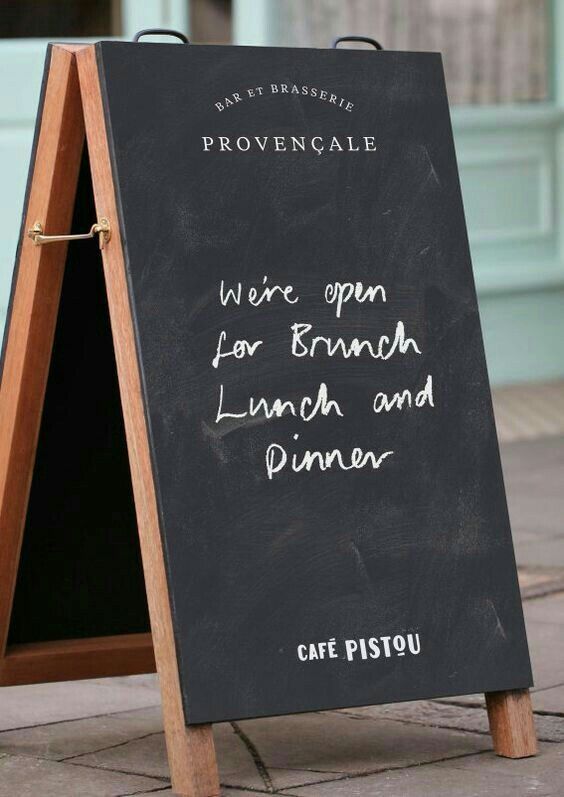 BAR ET BRASSERIE
PROVENÇALE
We're open
for Brunch
Lunch and
Dinner
CAFÉ PISTOU